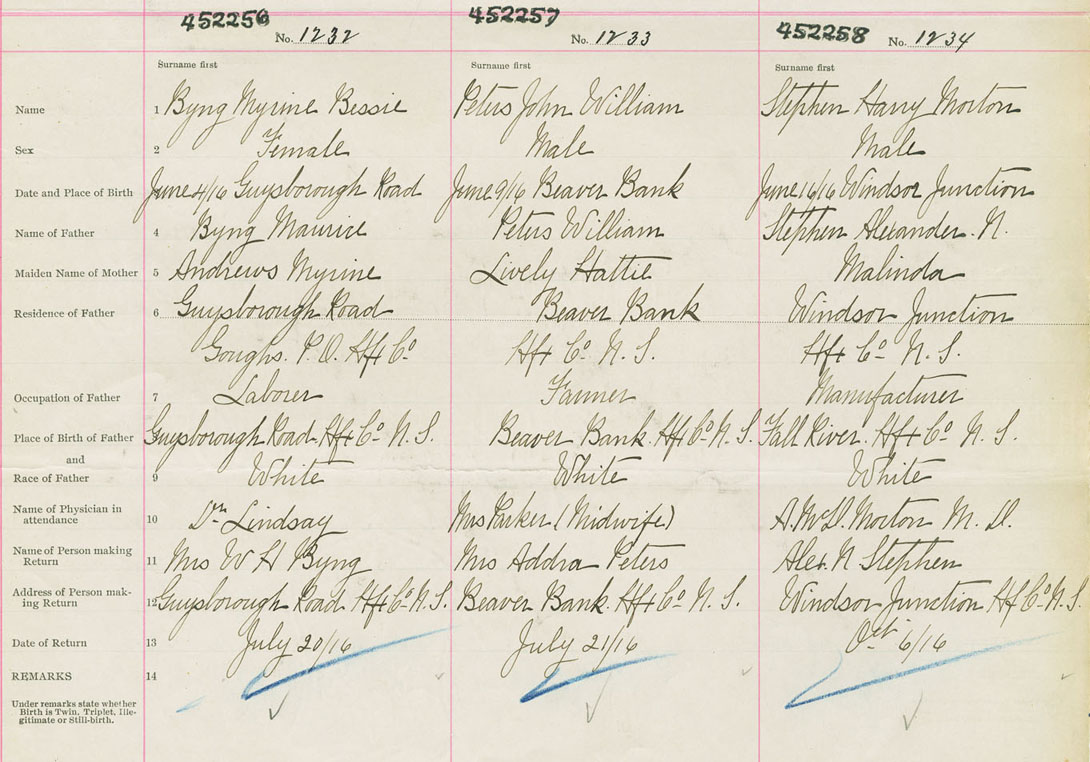 452256 452257 452258
No. 1232 No. 1233 No. 1234
Surname first Surname first Surname first
Name 1 Byng Myrine Bessie Peters John William Stephen Harry Morton
Sex 2 Female Male Male
Date and Place of Birth June 4/16 Guysborough Road June 9/16 Beaver Bank June 16/16 Windsor Junction
Name of Father 4 Byng Maurice Peters William Stephen Alexander. N.
Maiden Name of Mother 5 Andrews Myrine Lively Hattie Malinda
Residence of Father 6 Guysborough Road Beaver Bank Windsor Junction
Goughs. P.O. Hfx Co Hfx Co. N. S. Hfx Co. N. S.
Occupation of Father 7 Laborer Farmer Manufacturer
Place of Birth of Father Guysborough Road Hfx Co. N. S. Beaver Bank. Hfx Co. N. S. Fall River. Hfx Co. N. S.
and
Race of Father 9 White White White
Name of Physician in
attendance 10 Dr. Lindsay Mrs Parker (Midwife) A. McD. Morton M. D.
Name of Person making
Return 11 Mrs W H Byng Mrs Addra Peters Alex. N Stephen
Address of Person mak-
ing Return 12 Guysborough Road Hfx Co. N. S. Beaver Bank. Hfx Co. N. S. Windsor Junction Hfx Co. N. S.
Date of Return 13 July 20/16 July 21/16 Oct 6/16
REMARKS 14
Under remarks state whether
Birth is Twin, Triplet, Ille-
gitimate or Still-birth.